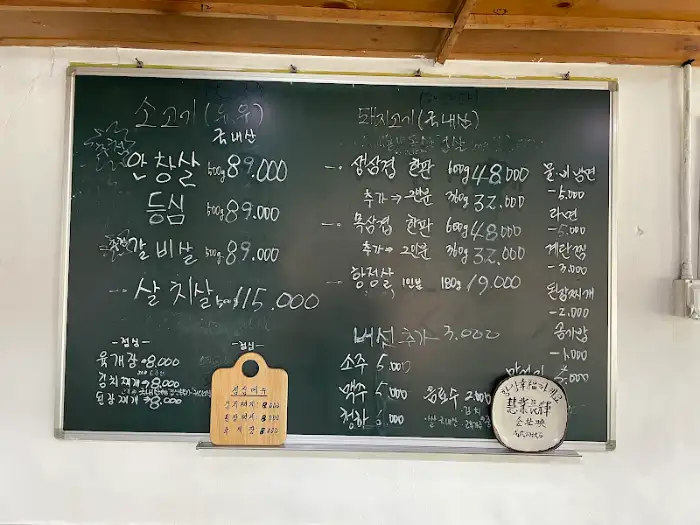 소고기(육우)
국내산
안창살 500g 89.000
등심 500g 89.000
추천 갈비살 500g 89.000
살치살 500g 115.000
-점심-
육개장→8,000
김치찌개→8,000
된장찌개→8,000
돼지고기(국내산)
생삼겹 한판 600g 48.000
추가→2인분 360g 32.000
목삼겹 한판 600g 48.000
추가→2인분 360g 32.000
항정살 1인분 180g 19.000
버섯추가 3.000
소주 5.000
맥주 5.000
청하 6.000
음료수 2.000
물·비냉면
-5.000
라면
-5.000
계란찜
-3.000
된장찌개
-2.000
공기밥
-1.000
점심메뉴
김치찌개: 8.000
된장찌개: 8.000
육개장: 8.000